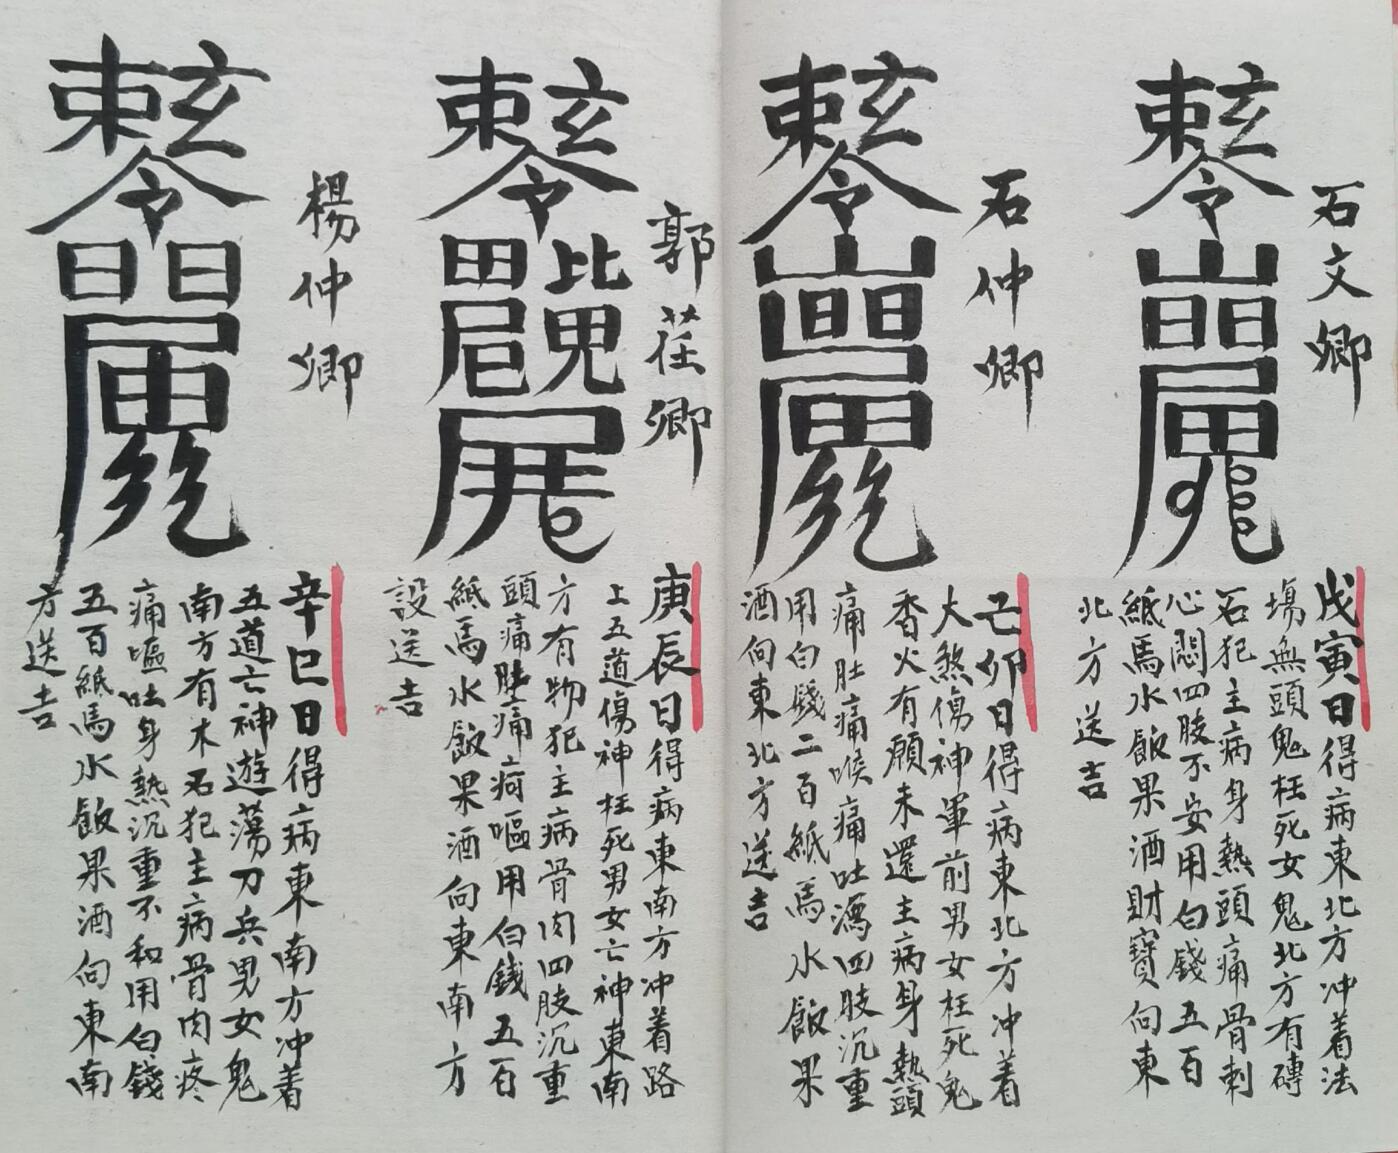 石文卿
戊寅日得病東北方冲着法
場無頭鬼枉死女鬼北方有磚
石犯主病身熱頭痛骨刺
心悶四肢不安用白錢五百
紙馬水飯果酒財寶向東
北方送吉
石仲卿
己卯日得病東北方冲着
大煞傷神軍前男女枉死鬼
香火有願未還主病身熱頭
痛肚痛喉痛吐瀉四肢沉重
用白錢二百紙馬水飯果
酒向東北方送吉
郭茬卿
庚辰日得病東南方冲着路
上五道傷神枉死男女亡神東南
方有物犯主病骨肉四肢沉重
頭痛肚痛嘔用白錢五百
紙馬水飯果酒向東南方
設送吉
楊仲卿
辛巳日得病東南方冲着
五道亡神遊蕩刀兵男女鬼
南方有木石犯主病骨肉疼
痛嘔吐身熱沉重不和用白錢
五百紙馬水飯果酒向東南
方送吉